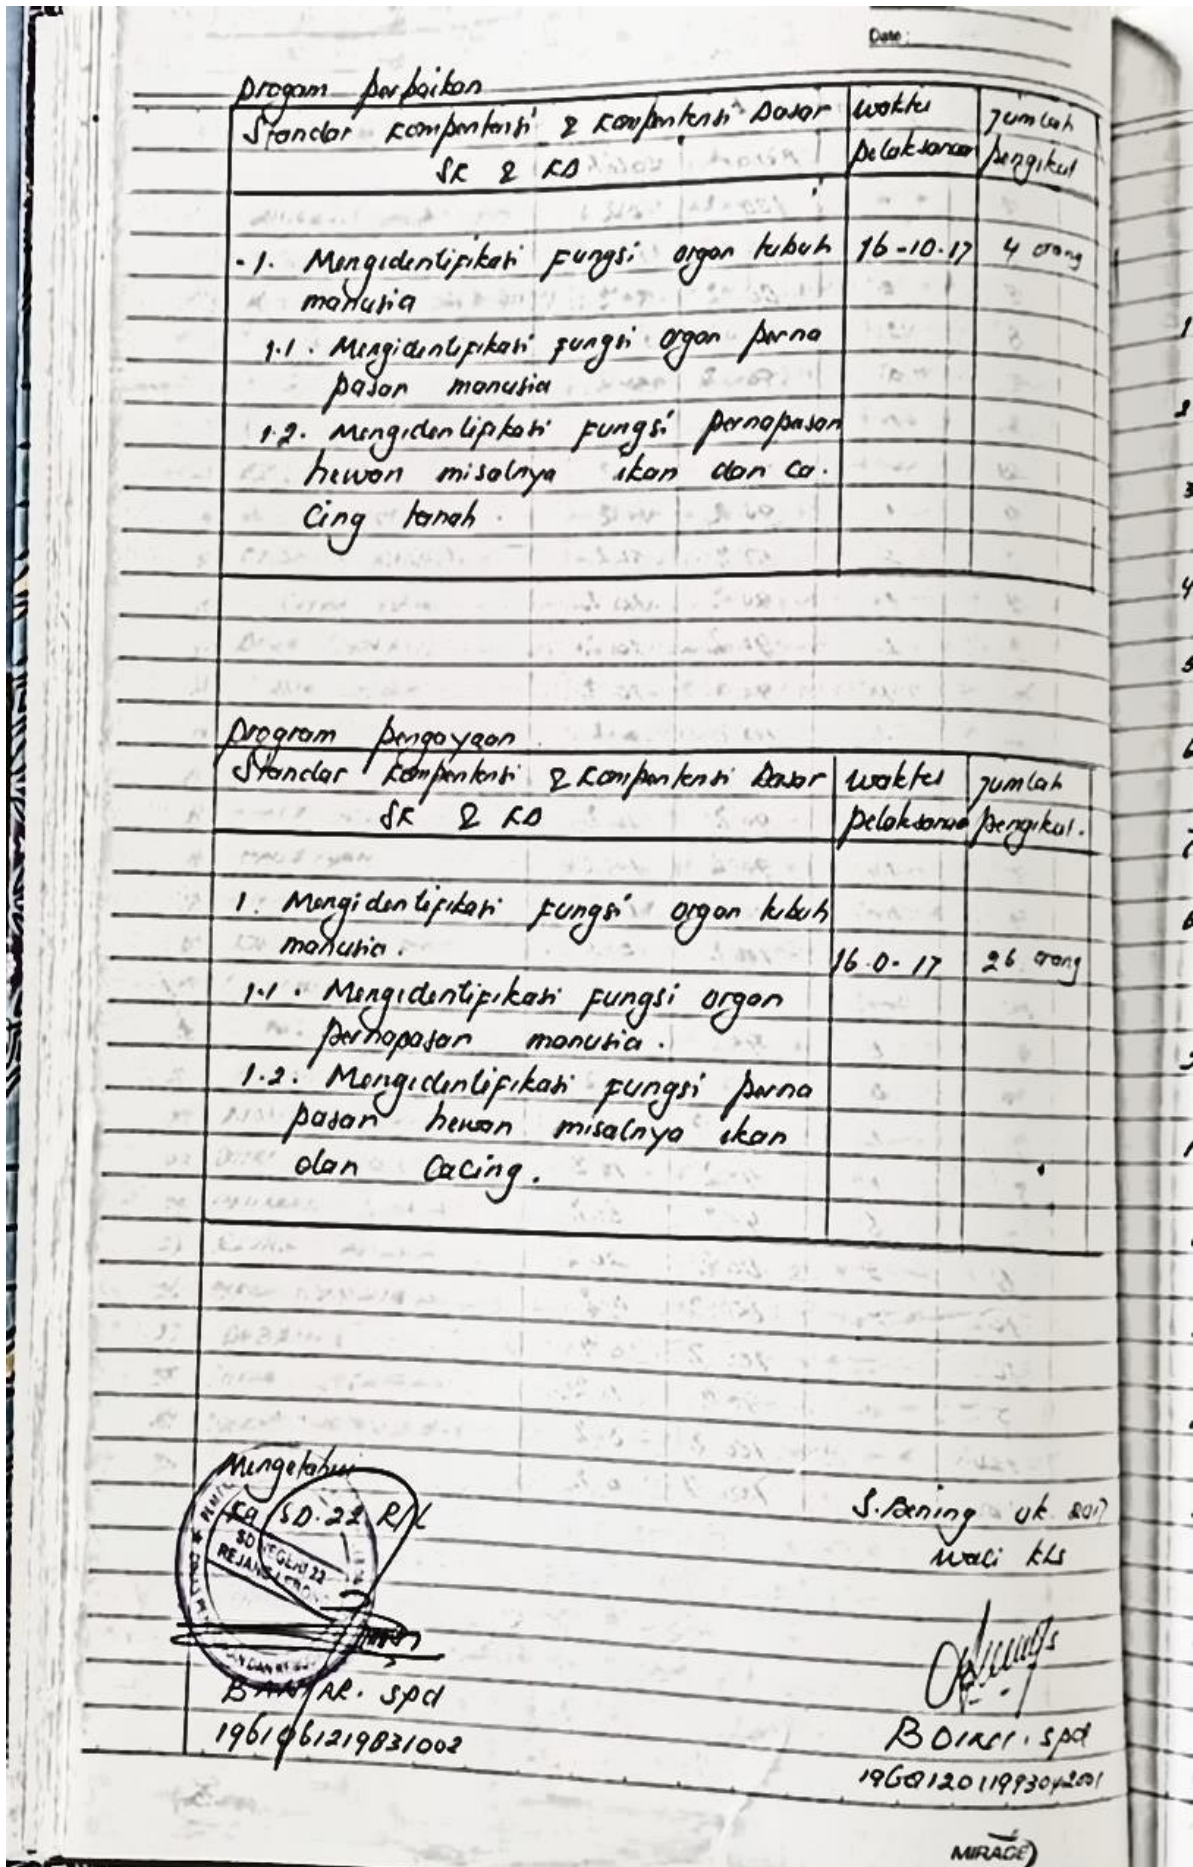 Date:
Progam perbaikan
Standar Kompentensi & Kompentensi Dasar
SK & KD
waktu
pelaksanaan
Jumlah
pengikut
1. Mengidentifikasi fungsi organ tubuh
manusia
16-10-17
4 orang
1.1. Mengidentifikasi fungsi organ perna
pasan manusia
1.2. Mengidentifikasi fungsi pernapasan
hewan misalnya ikan dan ca.
cing tanah.
Program pengayaan
Standar Kompentensi & Kompentensi Dasar
SK & KD
waktu
pelaksanaan
Jumlah
pengikut.
1. Mengidentifikasi fungsi organ tubuh
manusia.
16.0.17
26 orang
1.1. Mengidentifikasi fungsi organ
pernapasan manusia.
1.2. Mengidentifikasi fungsi perna
pasan hewan misalnya ikan
dan Cacing.
Mengetahui
Ka SD.22 R/L
SD NEGERI 22
REJANG LEBONG
S.Bening ok 2017
wali kls
spd
1961061219831002
spd
MIRAGE